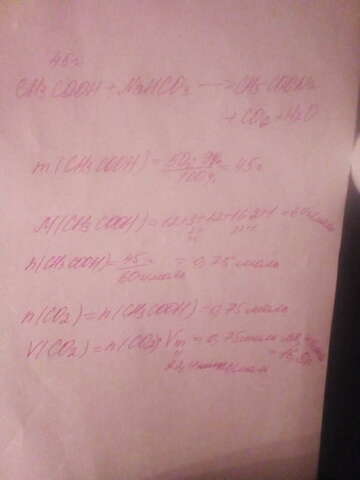 45г
CH3COOH + NaHCO3 → CH3COONa
+ CO2 + H2O
m(CH3COOH) = 50г · 9% / 100% = 45г
M(CH3COOH) = 12+3+12+16·2+1 = 60г/моль
n(CH3COOH) = 45г / 60г/моль = 0,75 моль
n(CO2) = n(CH3COOH) = 0,75 моль
V(CO2) = n(CO2) · Vm = 0,75 моль
= 16,8л